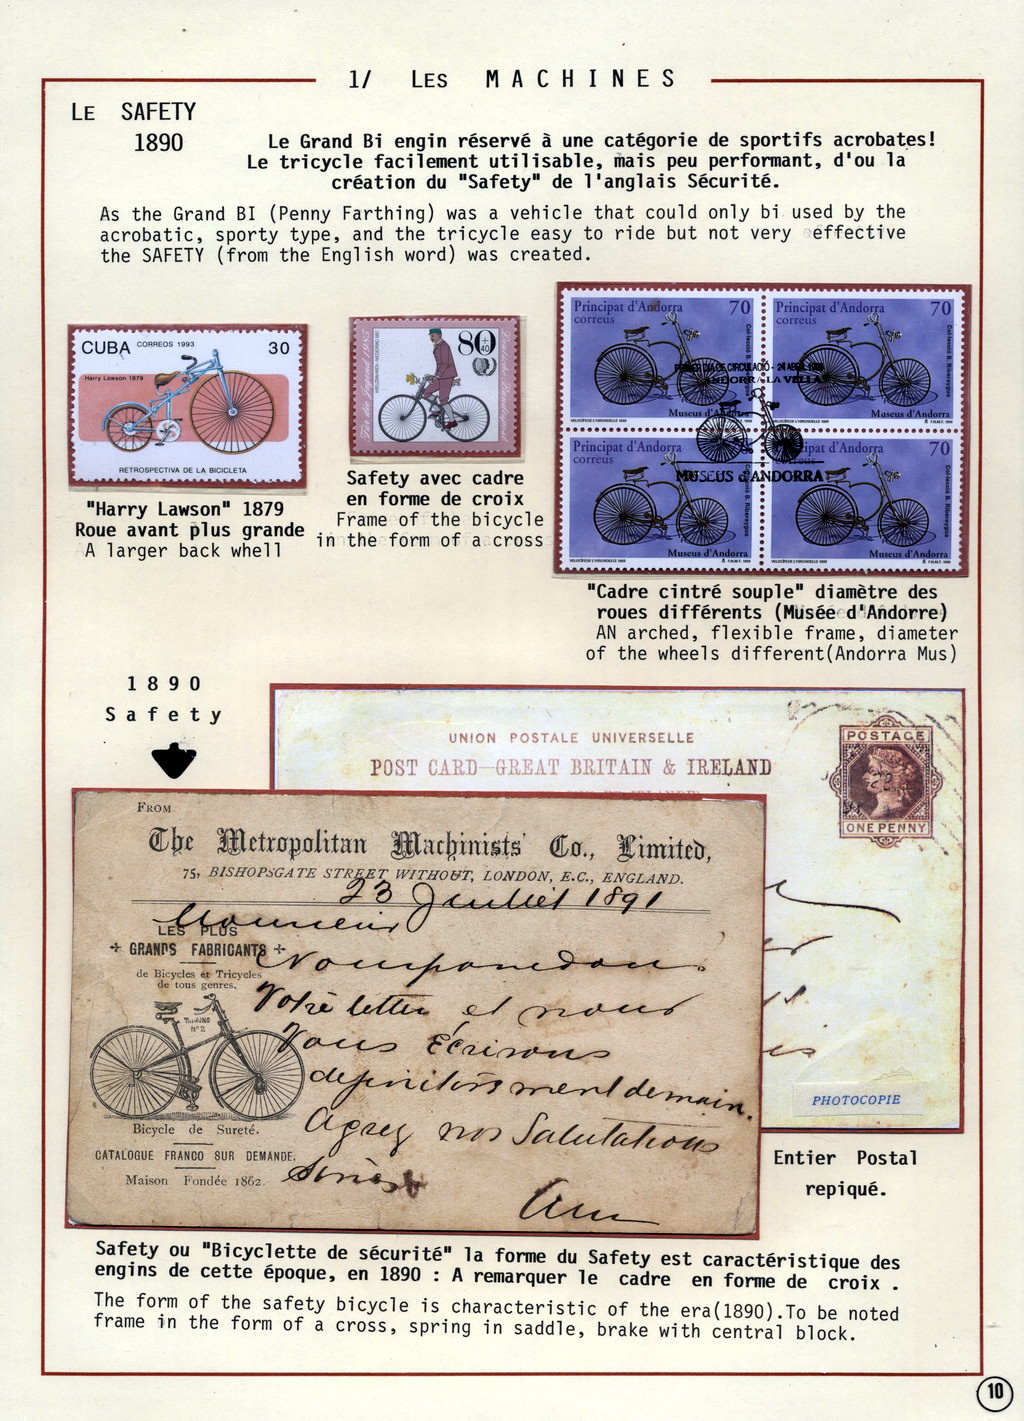 1/ LES MACHINES
LE SAFETY
1890
Le Grand Bi engin réservé à une catégorie de sportifs acrobates!
Le tricycle facilement utilisable, mais peu performant, d'ou la
création du "Safety" de l'anglais Sécurité.
As the Grand BI (Penny Farthing) was a vehicle that could only bi used by the
acrobatic, sporty type, and the tricycle easy to ride but not very effective
the SAFETY (from the English word) was created.
CUBA CORREOS 1993 30
Harry Lawson 1879
RETROSPECTIVA DE LA BICICLETA
"Harry Lawson" 1879
Roue avant plus grande
A larger back whell
80 + 40
Safety avec cadre
en forme de croix
Frame of the bicycle
in the form of a cross
Principat d'Andorra 70
correus
Col·lecció B. Riberaygua
Museus d'Andorra
Principat d'Andorra 70
correus
Col·lecció B. Riberaygua
Museus d'Andorra
Principat d'Andorra 70
correus
Col·lecció B. Riberaygua
Museus d'Andorra
Principat d'Andorra 70
correus
Col·lecció B. Riberaygua
Museus d'Andorra
PRIMER DIA DE CIRCULACIÓ
ANDORRA LA VELLA
MUSEUS d'ANDORRA
"Cadre cintré souple" diamètre des
roues différents (Musée d'Andorre)
AN arched, flexible frame, diameter
of the wheels different(Andorra Mus)
1890
Safety
UNION POSTALE UNIVERSELLE
POST CARD-GREAT BRITAIN & IRELAND
POSTAGE
ONE PENNY
PHOTOCOPIE
FROM
The Metropolitan Machinists' Co., Limited,
75, BISHOPSGATE STREET WITHOUT, LONDON, E.C., ENGLAND.
23 Juillet 1891
Monsieur
LES PLUS
GRANDS FABRICANTS
de Bicycles et Tricycles
de tous genres.
Nous
Votre lettre et nous
Vous Écrirons
definitivement demain.
Agreez nos Salutations
N° 2
Bicycle de Sureté.
CATALOGUE FRANCO SUR DEMANDE.
Maison Fondée 1862.
Entier Postal
repiqué.
Safety ou "Bicyclette de sécurité" la forme du Safety est caractéristique des
engins de cette époque, en 1890 : A remarquer le cadre en forme de croix .
The form of the safety bicycle is characteristic of the era(1890).To be noted
frame in the form of a cross, spring in saddle, brake with central block.
10